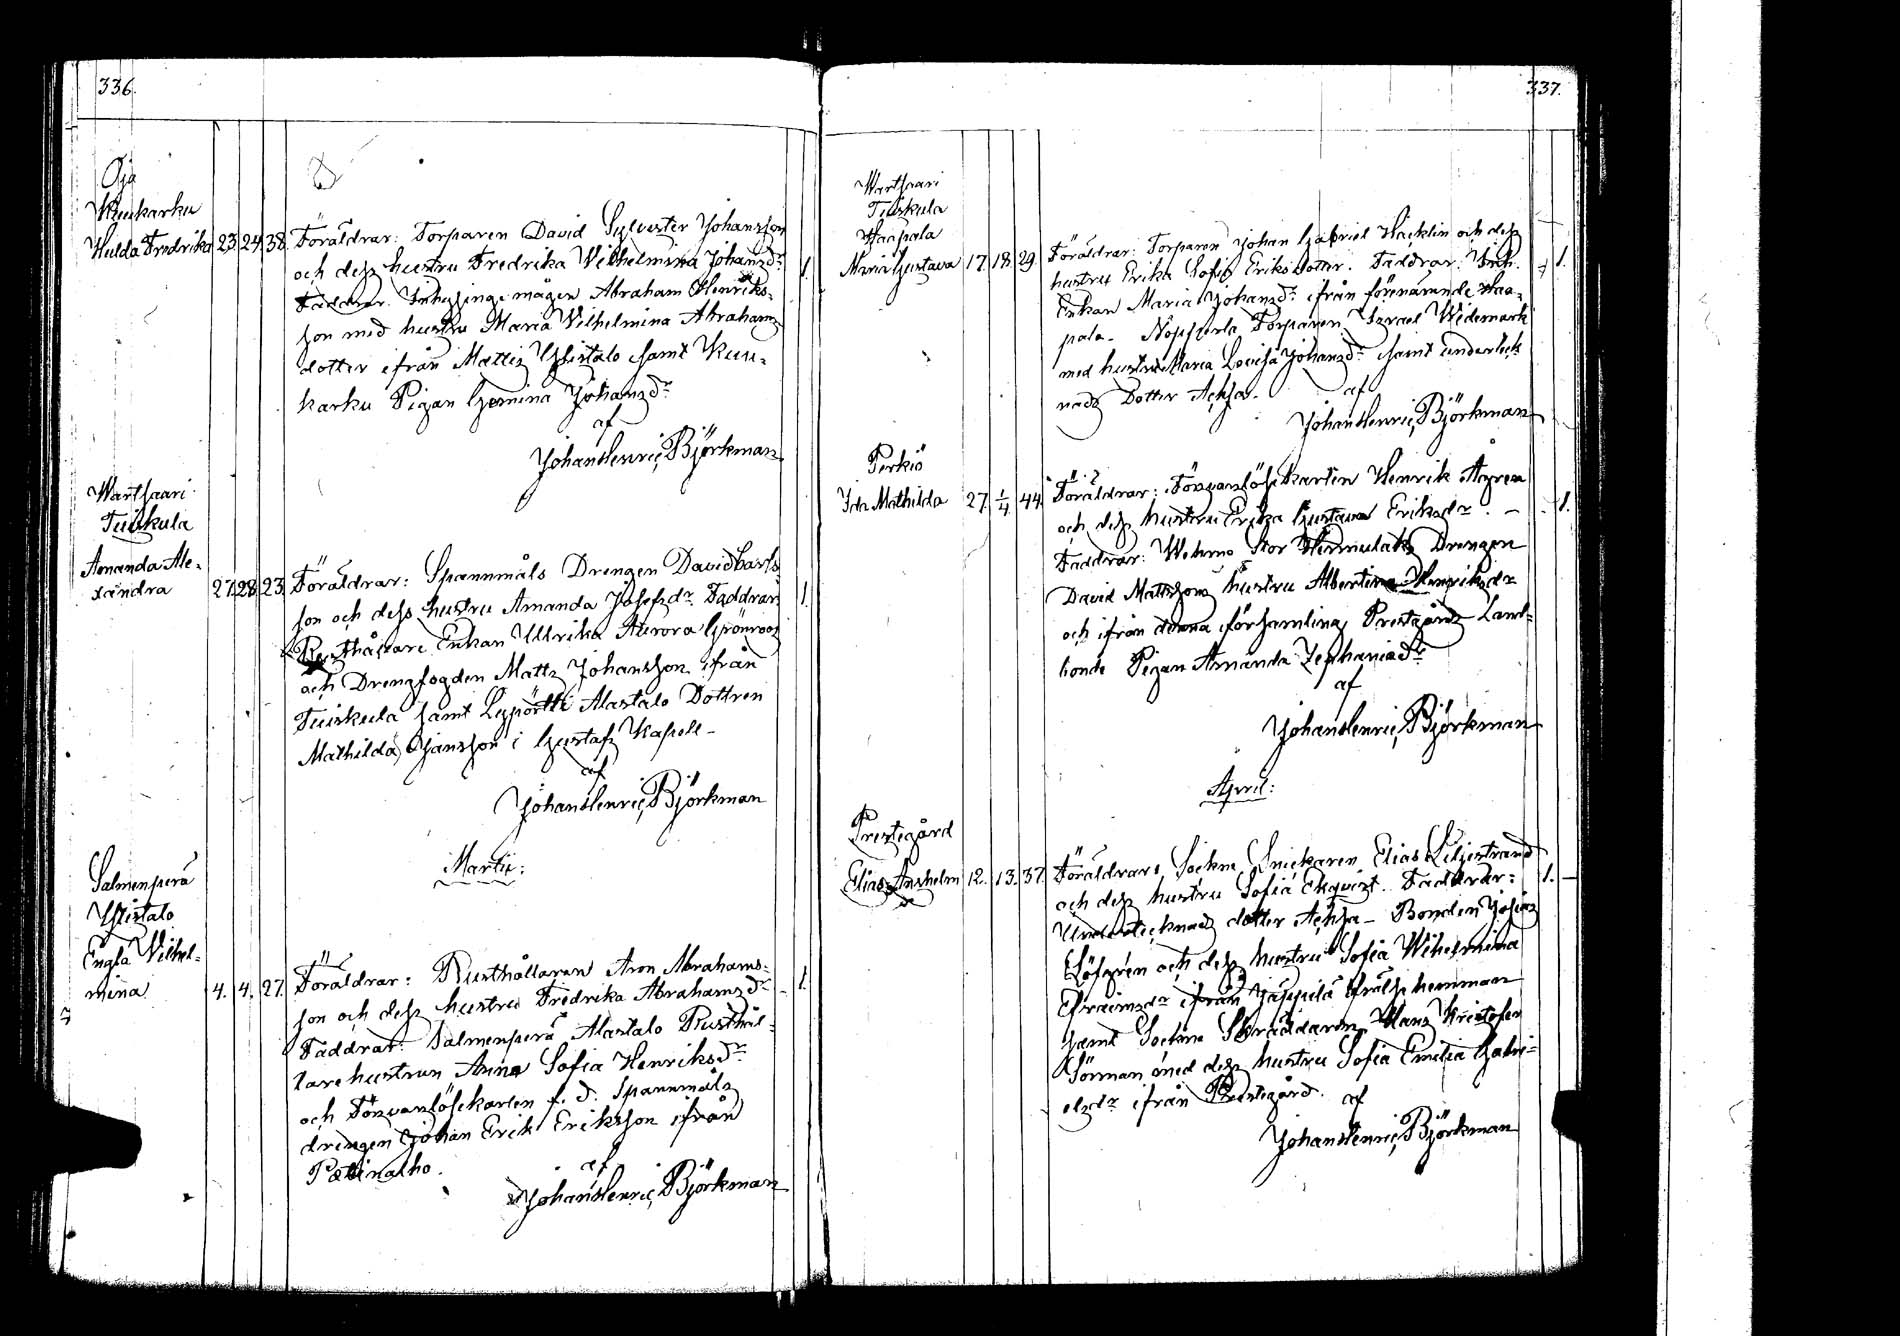 336.
Oja
Kuukarku
Hulda Fredrika 23. 24. 38. Föräldrar: Torparen David Sylvester Johansson
och dess hustru Fredrika Wilhelmina Johansdr 1.
Faddrar. Inhysinge mågen Abraham Henriks-
son med hustru Maria Wilhelmina Abrahams
dotter ifrån Mattis Ylistalo samt Kuu-
karku Pigan Gemina Johansdr
af
Johan Henric Björkman
Wartsaari
Tuiskula
Amanda Ale-
xandra 27. 28. 23. Föräldrar: Spannmåls Drengen David Carls
son och dess hustru Amanda Josefsdr Faddrar 1.
Rusthållare Enkan Ullrika Aurora Grönroos
och Drengfogden Matts Johansson ifrån
Tuiskula samt Lypörtti Alastalo Dottren
Mathilda Jansson i Gustafs Kapell -
af
Johan Henric Björkman
Martii:
Salmenperä
Ylistalo
Engla Wilhel-
mina 4. 4. 27. Föräldrar: Rusthållaren Aron Abrahams- 1.
son och dess hustru Fredrika Abrahamsdr
Faddrar: Salmenperä Alastalo Rusthål-
lare hustrun Anna Sofia Henriksdr
och Försvarslösekarlen f. d. Spannmåls
drengen Johan Erik Eriksson ifrån
Patinalho.
af
Johan Henric Björkman
337.
Wartsaari
Tuiskula
Haapala
Maria Gustava 17. 18. 29. Föräldrar: Torparen Johan Gabriel Häcklin och dess 1.
hustru Erika Sofia Eriksdotter. Faddrar: Inh.
Enkan Maria Johansdr ifrån förenämnde Haa-
pala - Torparen Israel Widemark
med hustru Maria Lovisa Johansdr samt underteck-
nads Dotter Achsa.
af
Johan Henric Björkman
Perkiö
Ida Mathilda 27. 1/4 44. Föräldrar: Försvarslösekarlen Henrik Ågren 1.
och dess hustru Erika Gustava Eriksdr. -
Faddrar: Wehmo Stor Drengen
David Mattssons hustru Albertina Henriksdr
och ifrån denna församling Prestgårds Land-
bonde Pigan Amanda Zephaniadr
af
Johan Henric Björkman
April:
Prestegård
Elias Anshelm 12. 13. 37. Föräldrar: Sockne Snickaren Elias Liljestrand 1.
och dess hustru Sofia Ekqvist. Faddrar:
Undertecknads dotter Achsa - Bonden Josias
Löfgren och dess hustru Sofia Wilhelmina
Efraimsdr ifrån Jäppilä frälse hemman
samt Sockne Skräddaren Hans Kristofer
Sörman med dess hustru Sofia Emelia Gabri-
elsdr ifrån Prestegård. af
Johan Henric Björkman